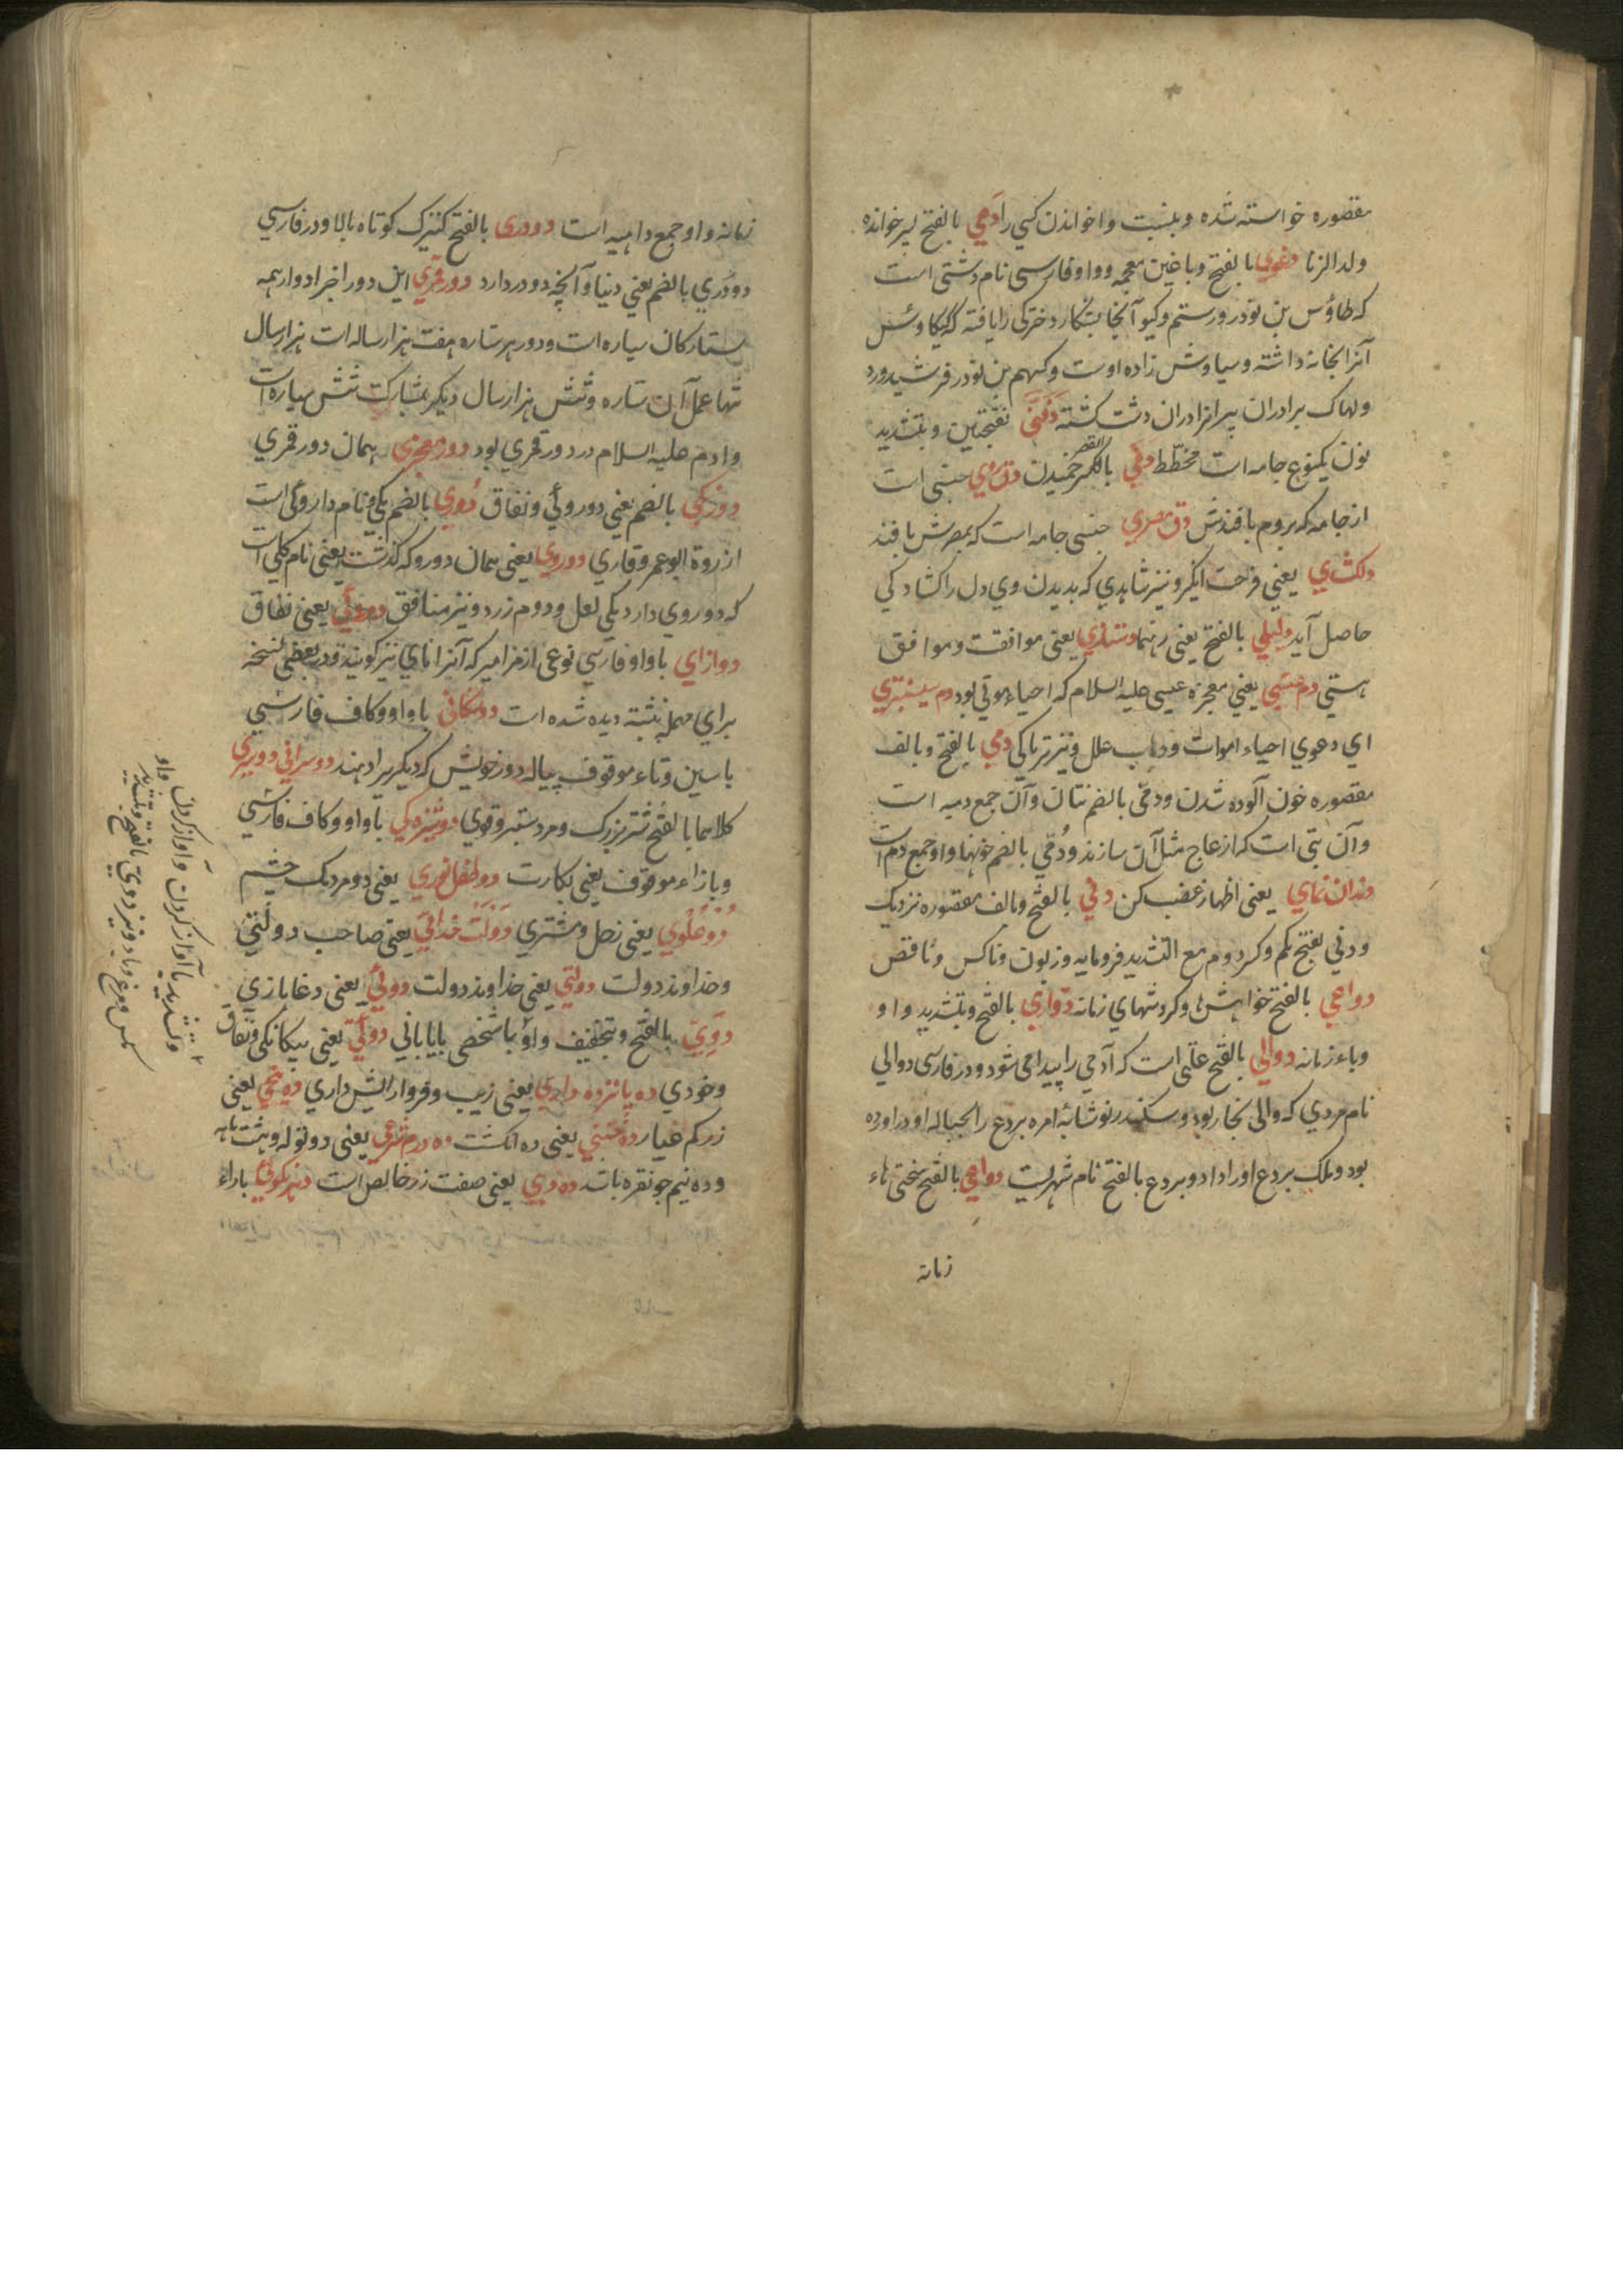 مقصوره خواسته شده و بنسبت واخواندن کسی را دعی بالفتح پسر خوانده
ولد الزنا دغوی بالفتح و باغین معجمه و واو فارسی نام دشتی است
که طاؤس بن نوذر و رستم و کیو آنجا بشکار دخترکی را یافته کیکاوس
آنرا بخانه داشته و سیاوش زاده اوست و کستهم بن نوذر فرشیدورد
ولهاک برادران پیرانرا دران دشت کشته دفنی بفتحتین و بتشدید
نون یکنوع جامه است مخطط دقی بالکسر خمیدن دق رومی جنسی است
از جامه که بروم بافندش دق مصری جنسی جامه است که بمصرش بافند
دلکشای یعنی فرحت انگیز و نیز شاهدی که بدیدن وی دل را کشادکی
حاصل آید دلیلی بالفتح یعنی رهنما دمسازی یعنی موافقت و موافق
هستی دم عیسی یعنی معجزه عیسی علیه السلام که احیاء موتی بود دم سیسنبری
ای دعوی احیاء اموات و ذهاب علل و نیز تریاکی دمی بالفتح و بالف
مقصوره خون آلوده شدن و دمی بالضم بتان و آن جمع دمیه است
و آن بتی است که از عاج مثل آن سازند و دمی بالضم خونها و او جمع دم است
دندان نمای یعنی اظهار غضب کن دنی بالفتح و بالف مقصوره نزدیک
و دنی بفتح یکم و کسر دوم مع التشدید فرومایه و زبون و ناکس و ناقص
دواعی بالفتح خواهشها و کردشهای زمانه دواری بالفتح و بتشدید واو
و باء زمانه دوالی بالفتح علتی است که آدمی را پیدا می شود و در فارسی دوالی
نام مردی که والی بخار بود و سکندر نوشابه امره بردع را بحباله او در آورده
بود و ملک بردع او را داد و بردع بالفتح نام شهریست دواهی بالفتح سختی هاء
زمانه
زمانه و او جمع داهیه است دودری بالفتح کنیزک کوتاه بالا و در فارسی
دودری بالضم یعنی دنیا و آنچه دو در دارد دور قمری این دور اخر ادوار همه
ستارکان سیاره است و دور هر ستاره هفت هزار ساله است هزار سال
تنها عمل آن ستاره و شش هزار سال دیگر بمشارکت شش سیاره است
و آدم علیه السلام در دور قمری بود دور همان دور قمری
دورنکی بالضم یعنی دوروئی و نفاق دوری بالضم یکی و نام داروئی است
از روة ابو عمرو قاری دوروی یعنی همان دورو که کذشت یعنی نام کلی است
که دو روی دارد یکی لعل و دوم زرد و نیز منافق دوروئی یعنی نفاق
دوازای باواو فارسی نوعی از مزامیر که آنرا نای نیز کویند و در بعضی نسخه
برای مهمله نبشته دیده شده است دوستکانی باواو و کاف فارسی
باسین و تاء موقوف پیاله دور خویش که دیگریرا دهند دوسرانی دوسری
کلاهما بالفتح شتر بزرک و مرد ستبر و قوی دوشیزه کی باواو و کاف فارسی
و بازاء موقوف یعنی بکارت دو طفل نوری یعنی دو مردمک چشم
دو علوی یعنی زحل و مشتری دولت خدائی یعنی صاحب دولتی
و خداوند دولت دولتی یعنی خداوند دولت دوئی یعنی دغابازی
دوی بالفتح و بتخفیف واو با شخص بیابانی دوئی یعنی بیکانکی و نفاق
و خودی ده پانزده داری یعنی زیب و فر و آرایش داری ده پنجی یعنی
زر کم عیار ده یعنی ده انکشت ده درم شرعی یعنی دو توله و هشت ماهه
و ده نیم جو نقره باشد ده دهی یعنی صفت زر خالص است باراء
و بتشدید با آواز کردن و آواز کردن واو
مکس و مرغ و باد و نیز دوی بالفتح و بتشدید